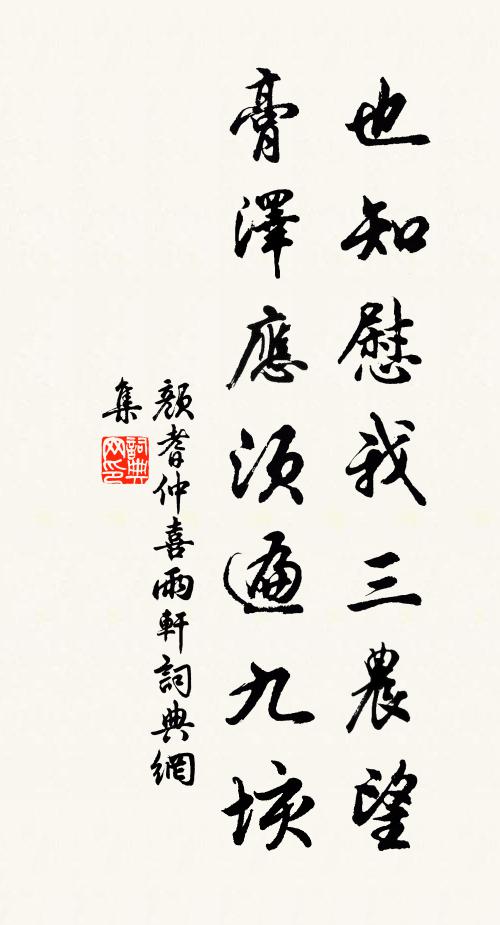 也知慰我三農望
膏澤應須遍九垓
顏耆仲喜雨軒詞典網
集
詞典网印